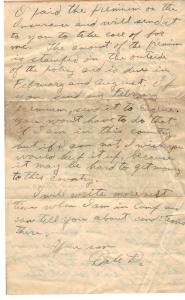 I paid the premium on the
Insurance and will send it
to you to take care of for
me. The amount of the premium
is stamped on the outside
of the policy and is due in
February and
February
premium send it to
I won't have to do that
if I am in this country
but if I am not I wish you
would keep it up, because
it may be hard to get money
to this country.
I will write more next
time when I am in Camp and
can tell you about conditions
there.
Your son
Dale L.